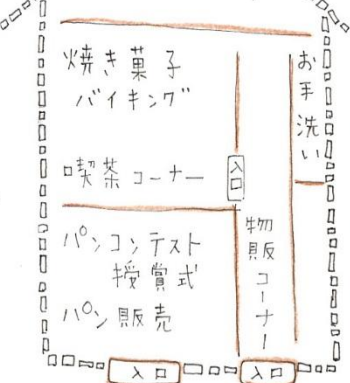 焼き菓子
バイキング
喫茶コーナー
入口
お手洗い
パンコンテスト
授賞式
パン販売
物販コーナー
入口
入口